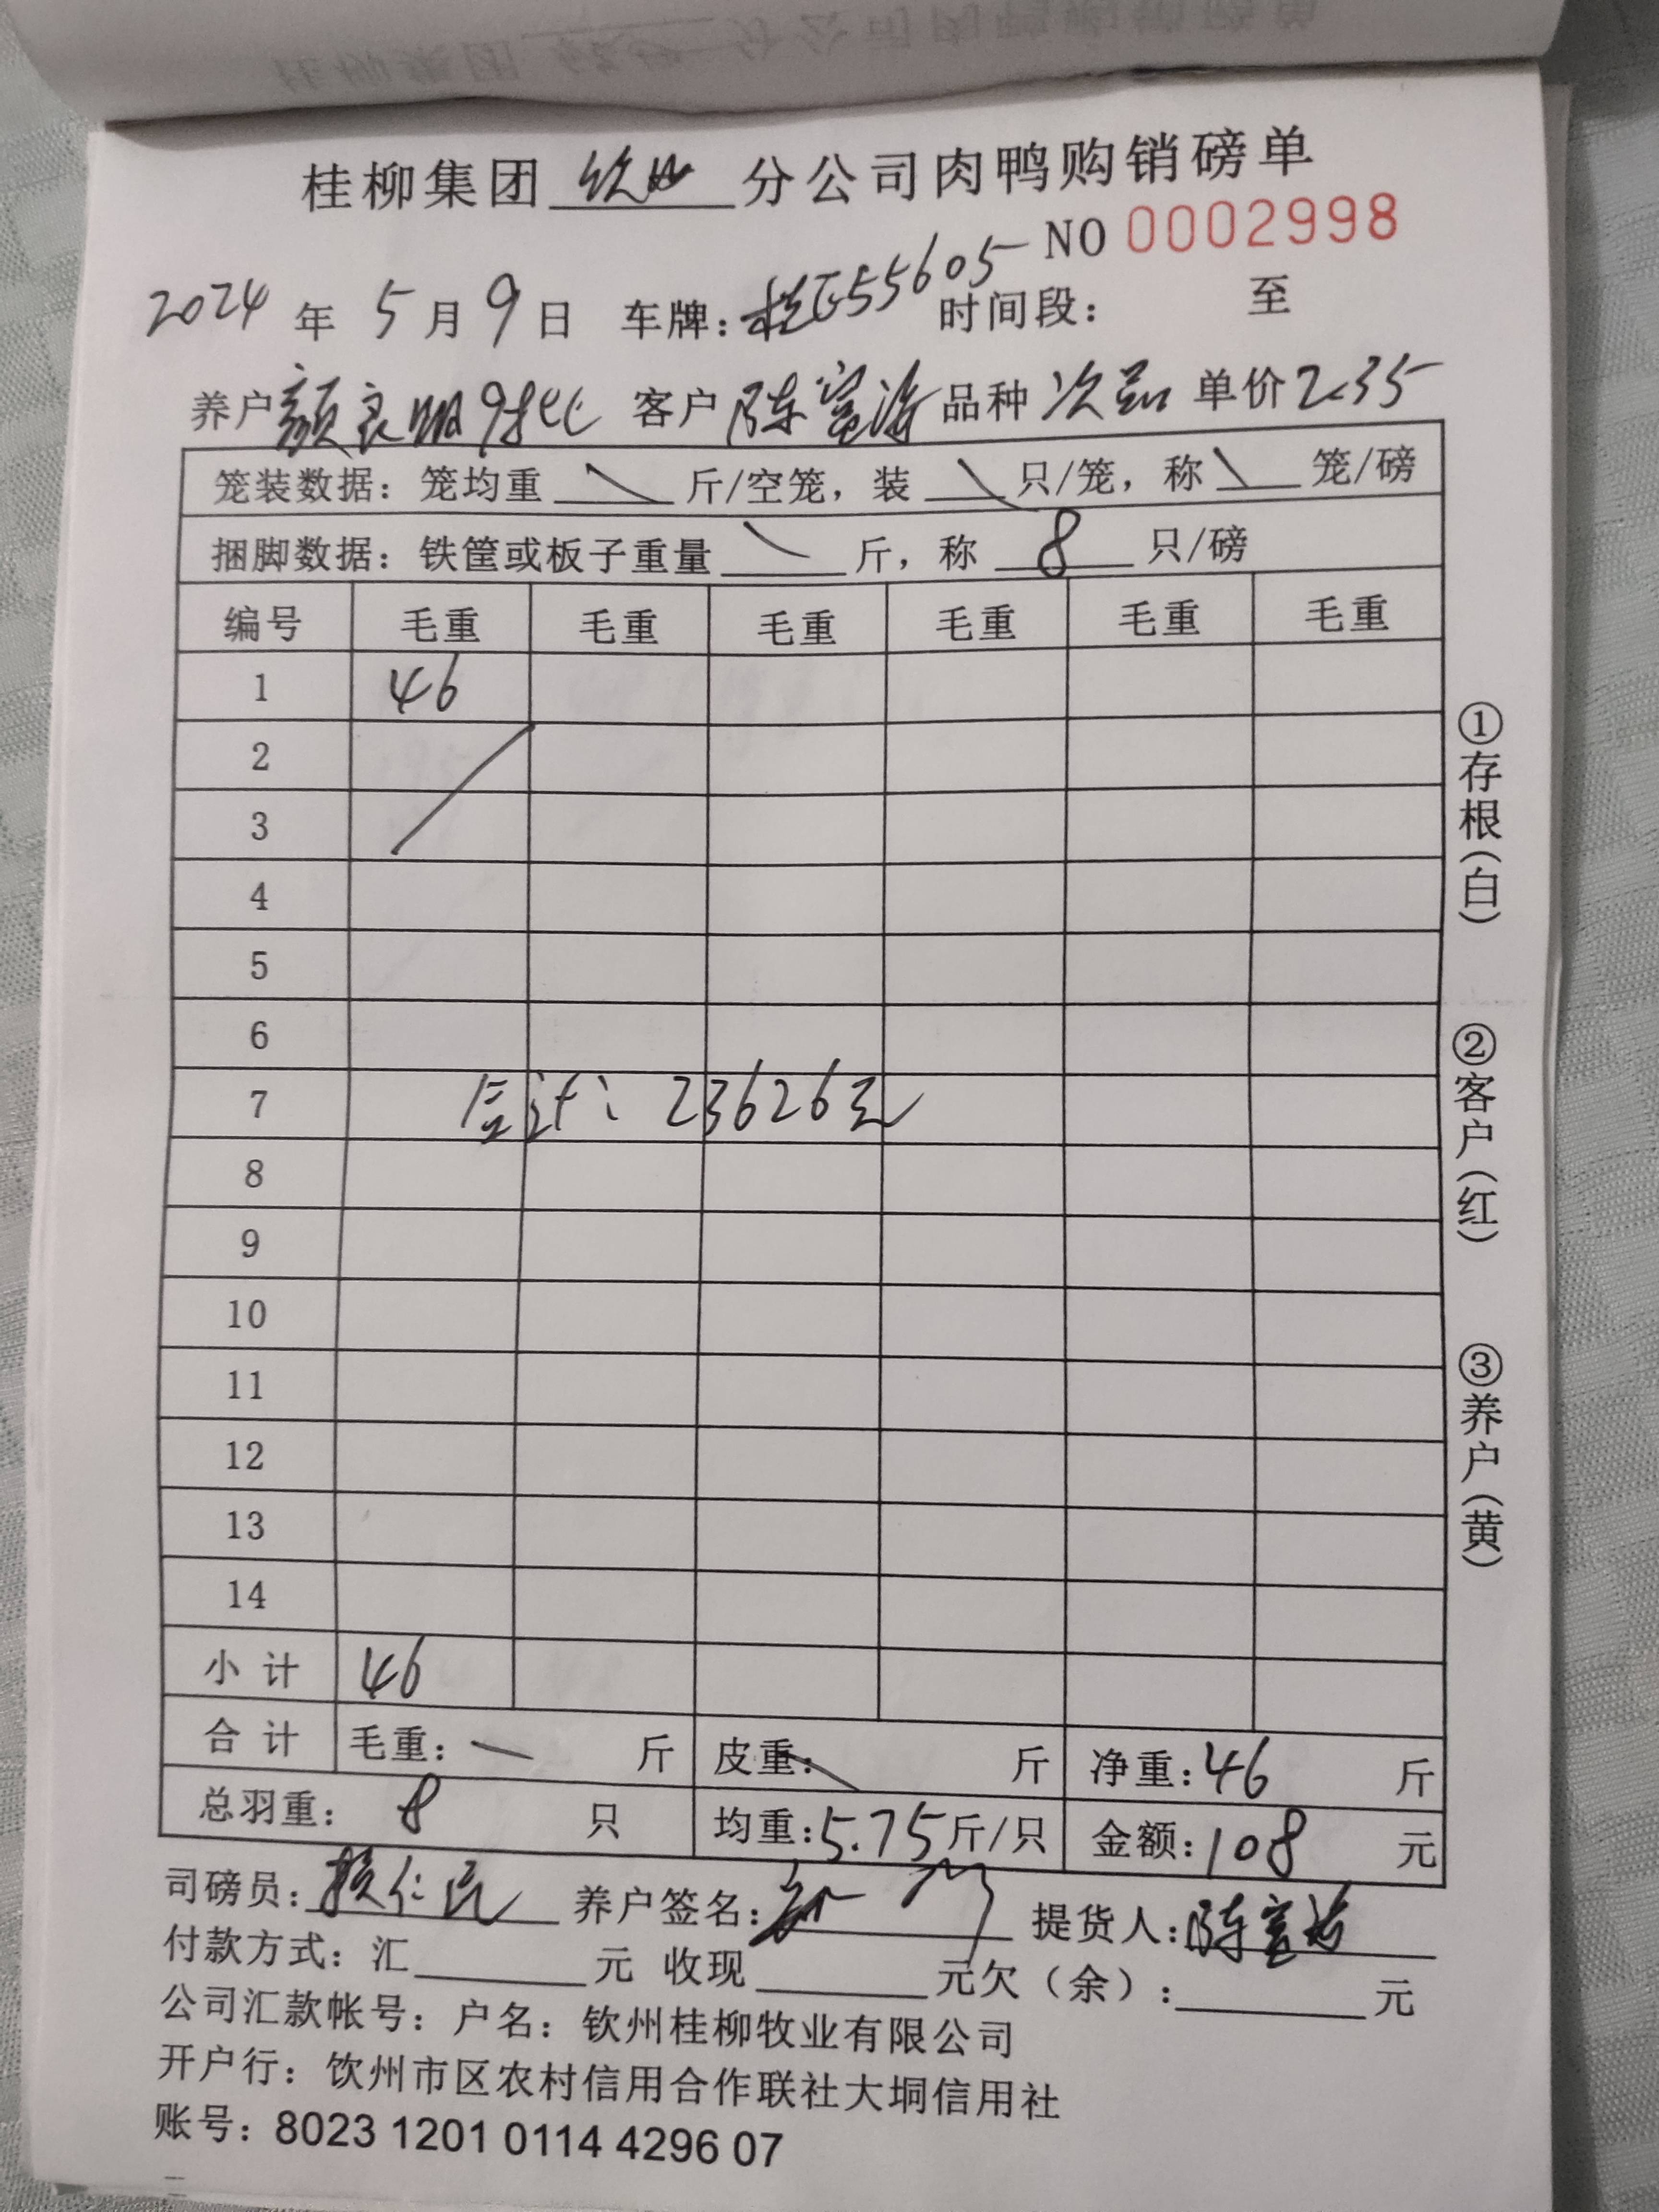 桂柳集团 钦州 分公司肉鸭购销磅单
NO 0002998
2024 年 5 月 9 日 车牌：桂E55605 时间段： 至
养户 颜良明9批 客户 陈富海 品种 次品 单价 2.35
笼装数据：笼均重 斤/空笼，装 只/笼，称 笼/磅
捆脚数据：铁筐或板子重量 斤，称 8 只/磅
编号 毛重 毛重 毛重 毛重 毛重 毛重
1 46
2
3
4
5
6
7 合计：23626元
8
9
10
11
12
13
14
小计 46
合计 毛重：— 斤 皮重： 斤 净重：46 斤
总羽重： 8 只 均重：5.75斤/只 金额：108 元
司磅员： 养户签名： 提货人：陈富海
付款方式：汇 元 收现 元欠（余）： 元
公司汇款帐号：户名：钦州桂柳牧业有限公司
开户行：饮州市区农村信用合作联社大垌信用社
账号：8023 1201 0114 4296 07
①存根（白）
②客户（红）
③养户（黄）